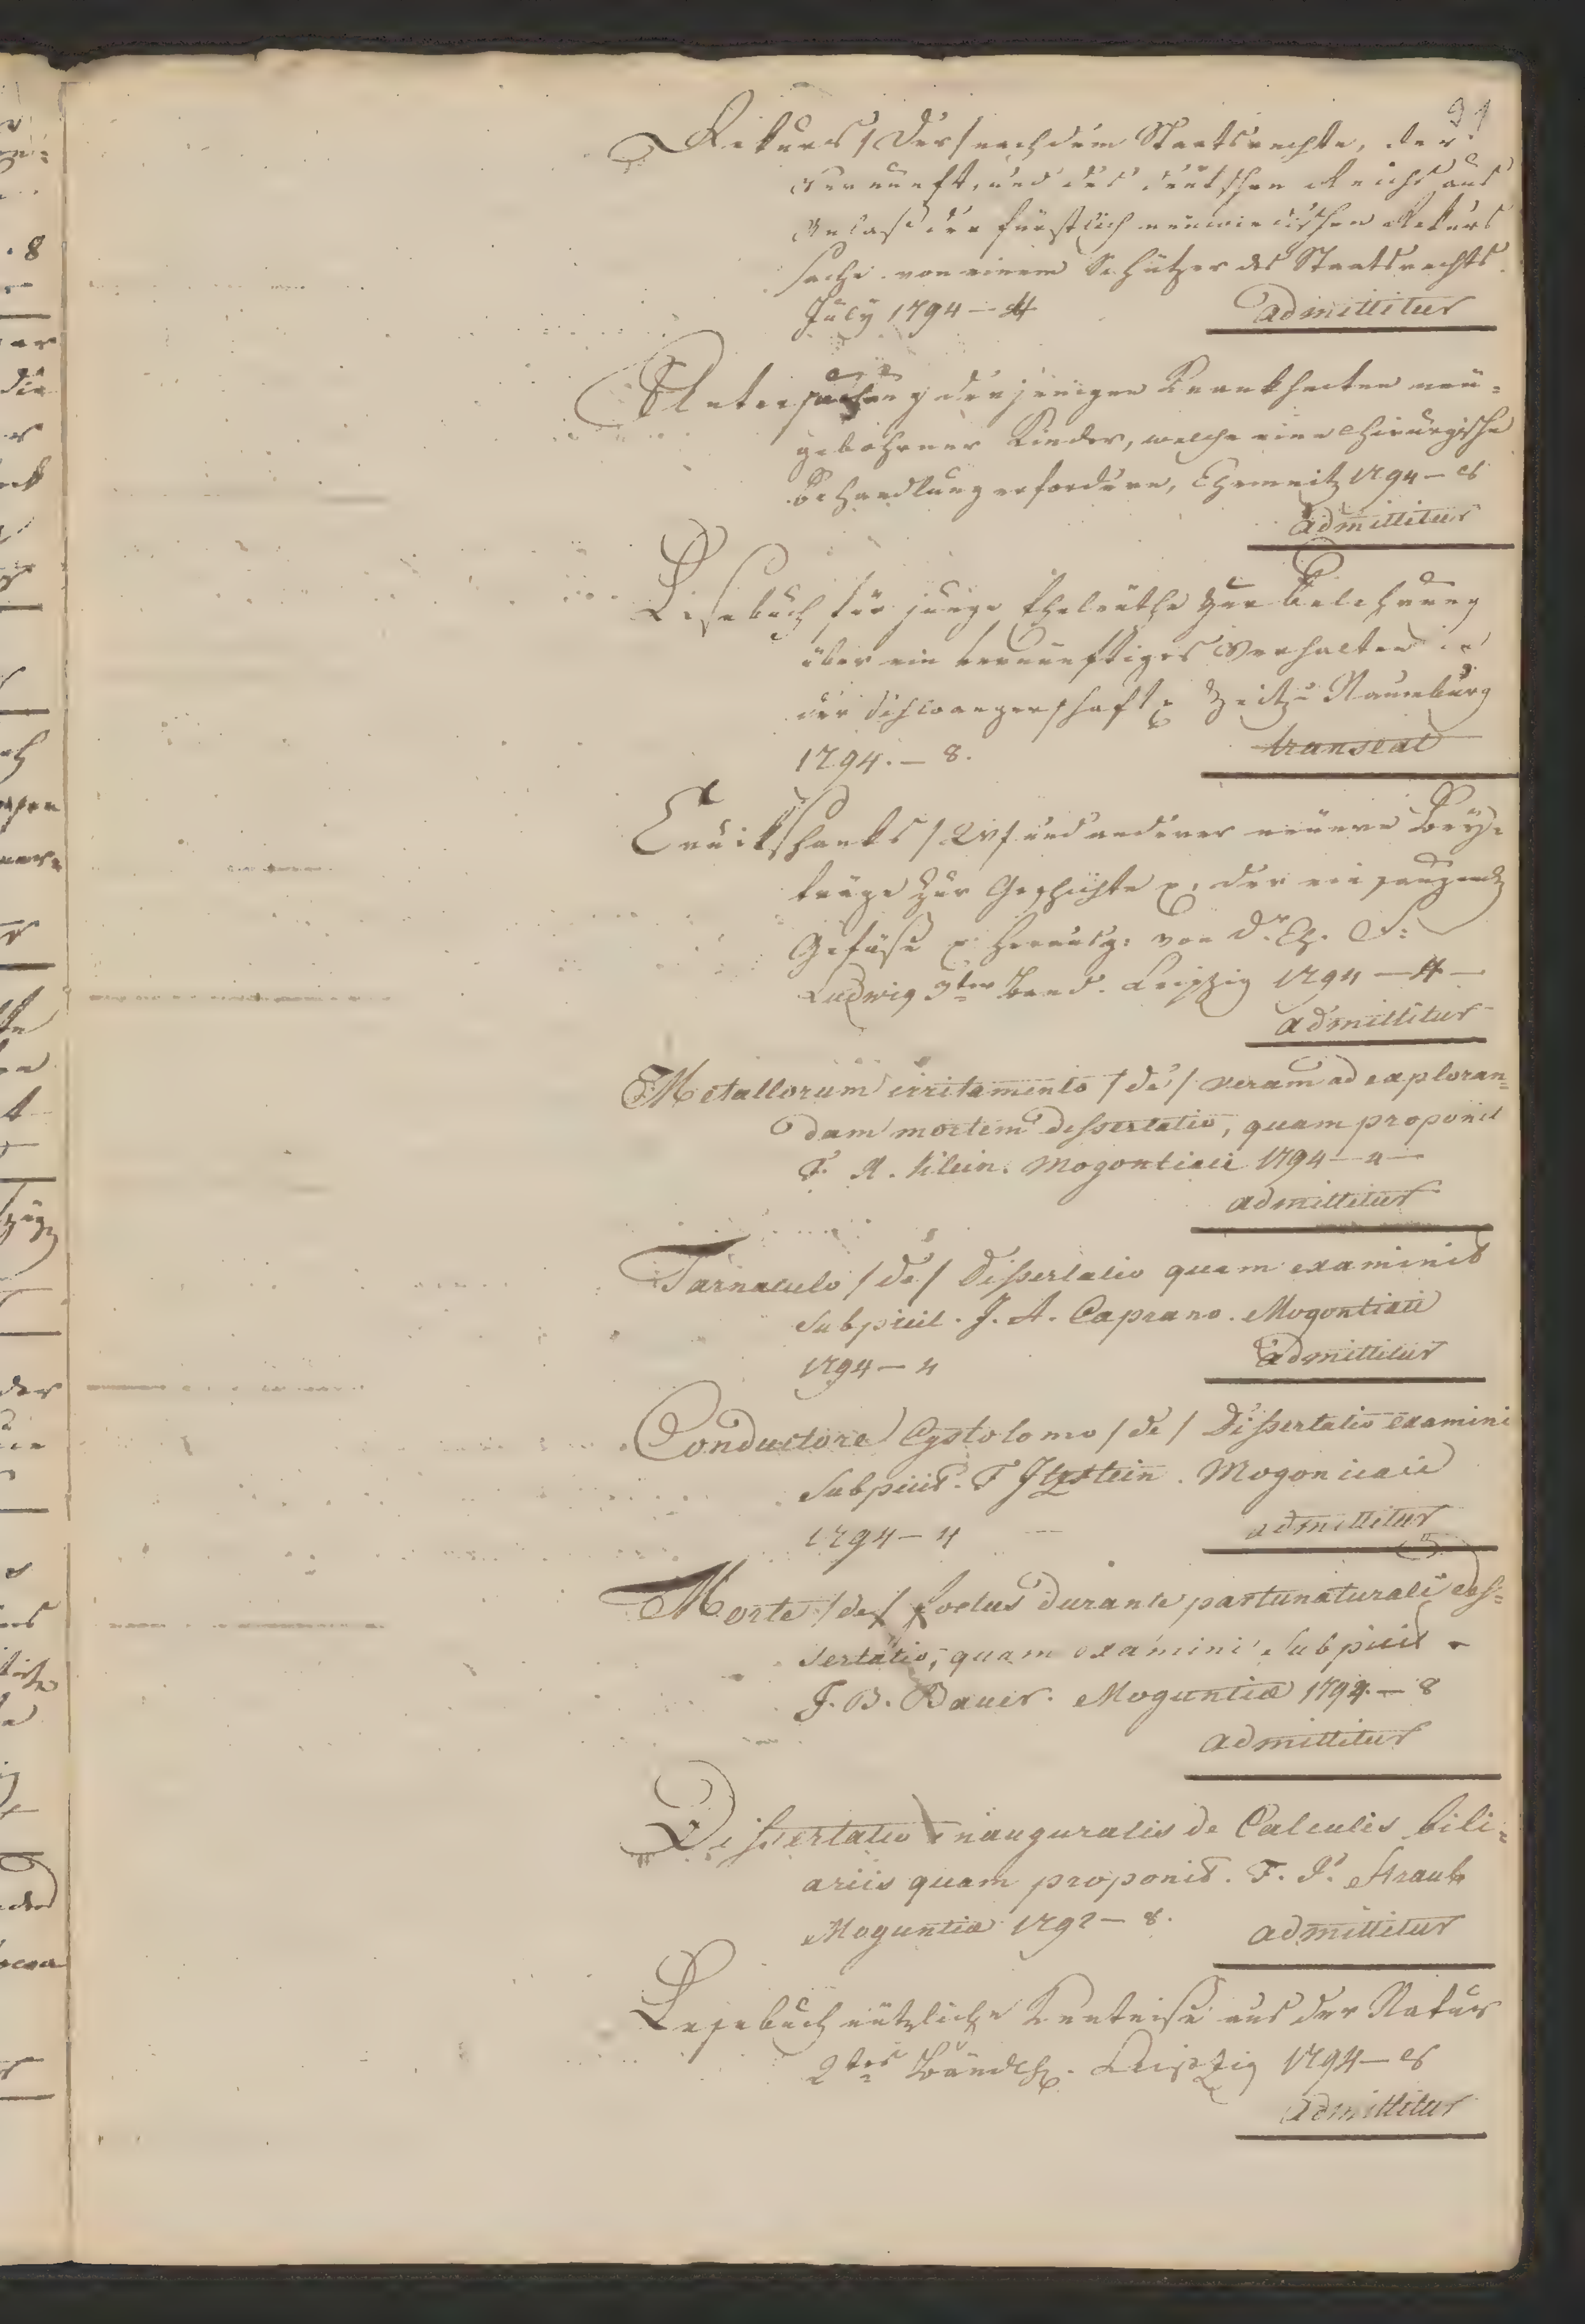 91
Rekurs /Der/ nach dem Staatsrechte, der
Vernunft, und des deutschen Reichs aus
Anlass der fürstlich neuwiedischen Rekurs
sache von einem Schützer des Staatsrechts.
July 1794 — 4 admittitur
Untersuchung derjenigen Krankheiten neu-
gebohrner Kinder, welche eine chirurgische
Behandlung erfordern, Chemnitz 1794 — 8
admittitur
Lesebuch für junge Eheleuthe zur Belehrung
über ein vernünftiges Verhalten in
der Schwangerschaft Zeitz u Naumburg
1794. — 8. transeat
Cruikshanks /W/ und anderer neuere Bey-
träge zur Geschichte der einsaugend
Gefäße herausg: von Dr. Ch. F:
Ludwig 3ter Band. Leipzig 1794 — 4 —
admittitur
Metallorum irritamento /de/ veram ad exploran-
dam mortem dissertatio, quam proponit
F. A. Klein. Mogontiaci 1794 — 4 —
admittitur
/de/ Dissertatio quam examinis
subjicit. J. A. Caprano. Mogontiaci
1794 — 4 admittitur
Conductore Cystotomo /de/ Dissertatio examini
subjicit. F Itzstein. Mogoniaci
1794 — 4 admittitur
Morte /de/ foetus durante partu naturali dis-
sertatio, quam examini subjicit
J. B. Bauer. Moguntiæ 1794. — 8
admittitur
Dissertatio inauguralis de Calculis bili-
ariis quam proponit. F. J. Straub
Moguntiæ 1792 — 8. admittitur
Lesebuch nützliche Kentniße aus der Natur
2tes Bändch. Leipzig 1794 — 8
admittitur